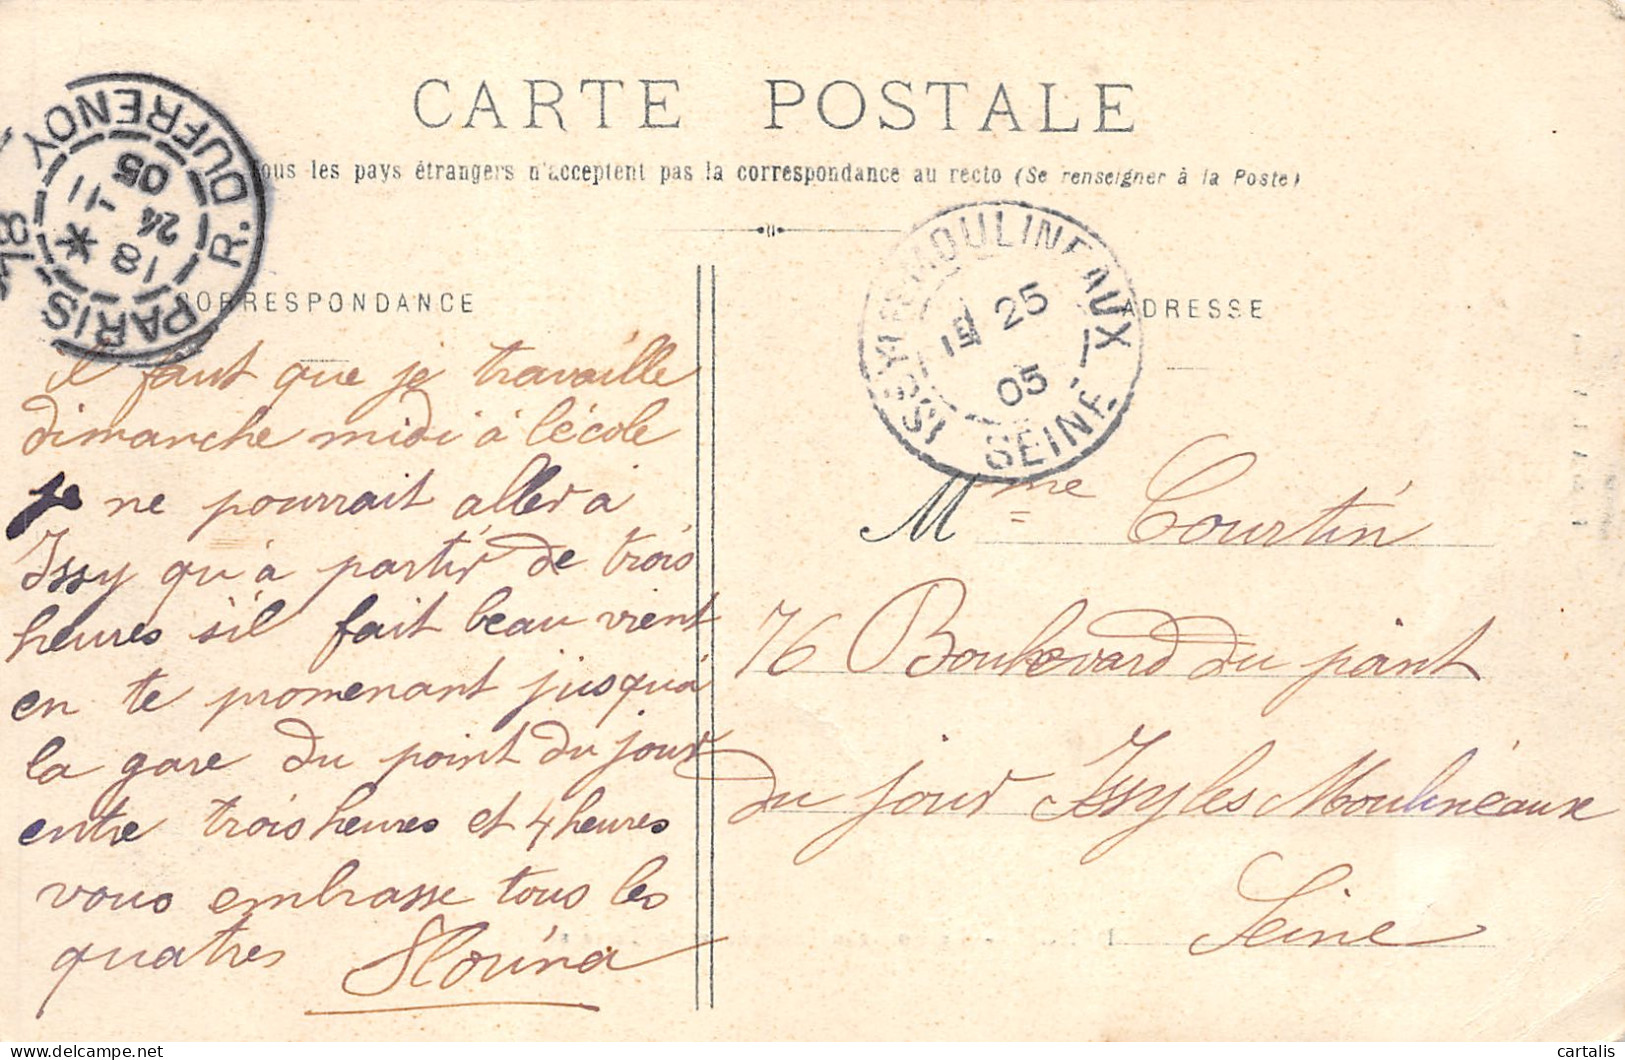 CARTE POSTALE
Tous les pays étrangers n'acceptent pas la correspondance au recto (Se renseigner à la Poste)
PARIS 48 R. DUFRENOY
18 *
24 -11
05
ISSY-LES-MOULINEAUX
25
05
SEINE
CORRESPONDANCE
ADRESSE
il faut que je travaille
dimanche midi à l'école
je ne pourrait aller à
Issy qu'à partir de trois
heures s'il fait beau vient
en te promenant jusqu'à
la gare du point du jour
entre trois heures et 4 heures
vous embrasse tous les
quatres
Mme Courtin
76 Boulevard du point
du jour Issy les Moulineaux
Seine
cartalis